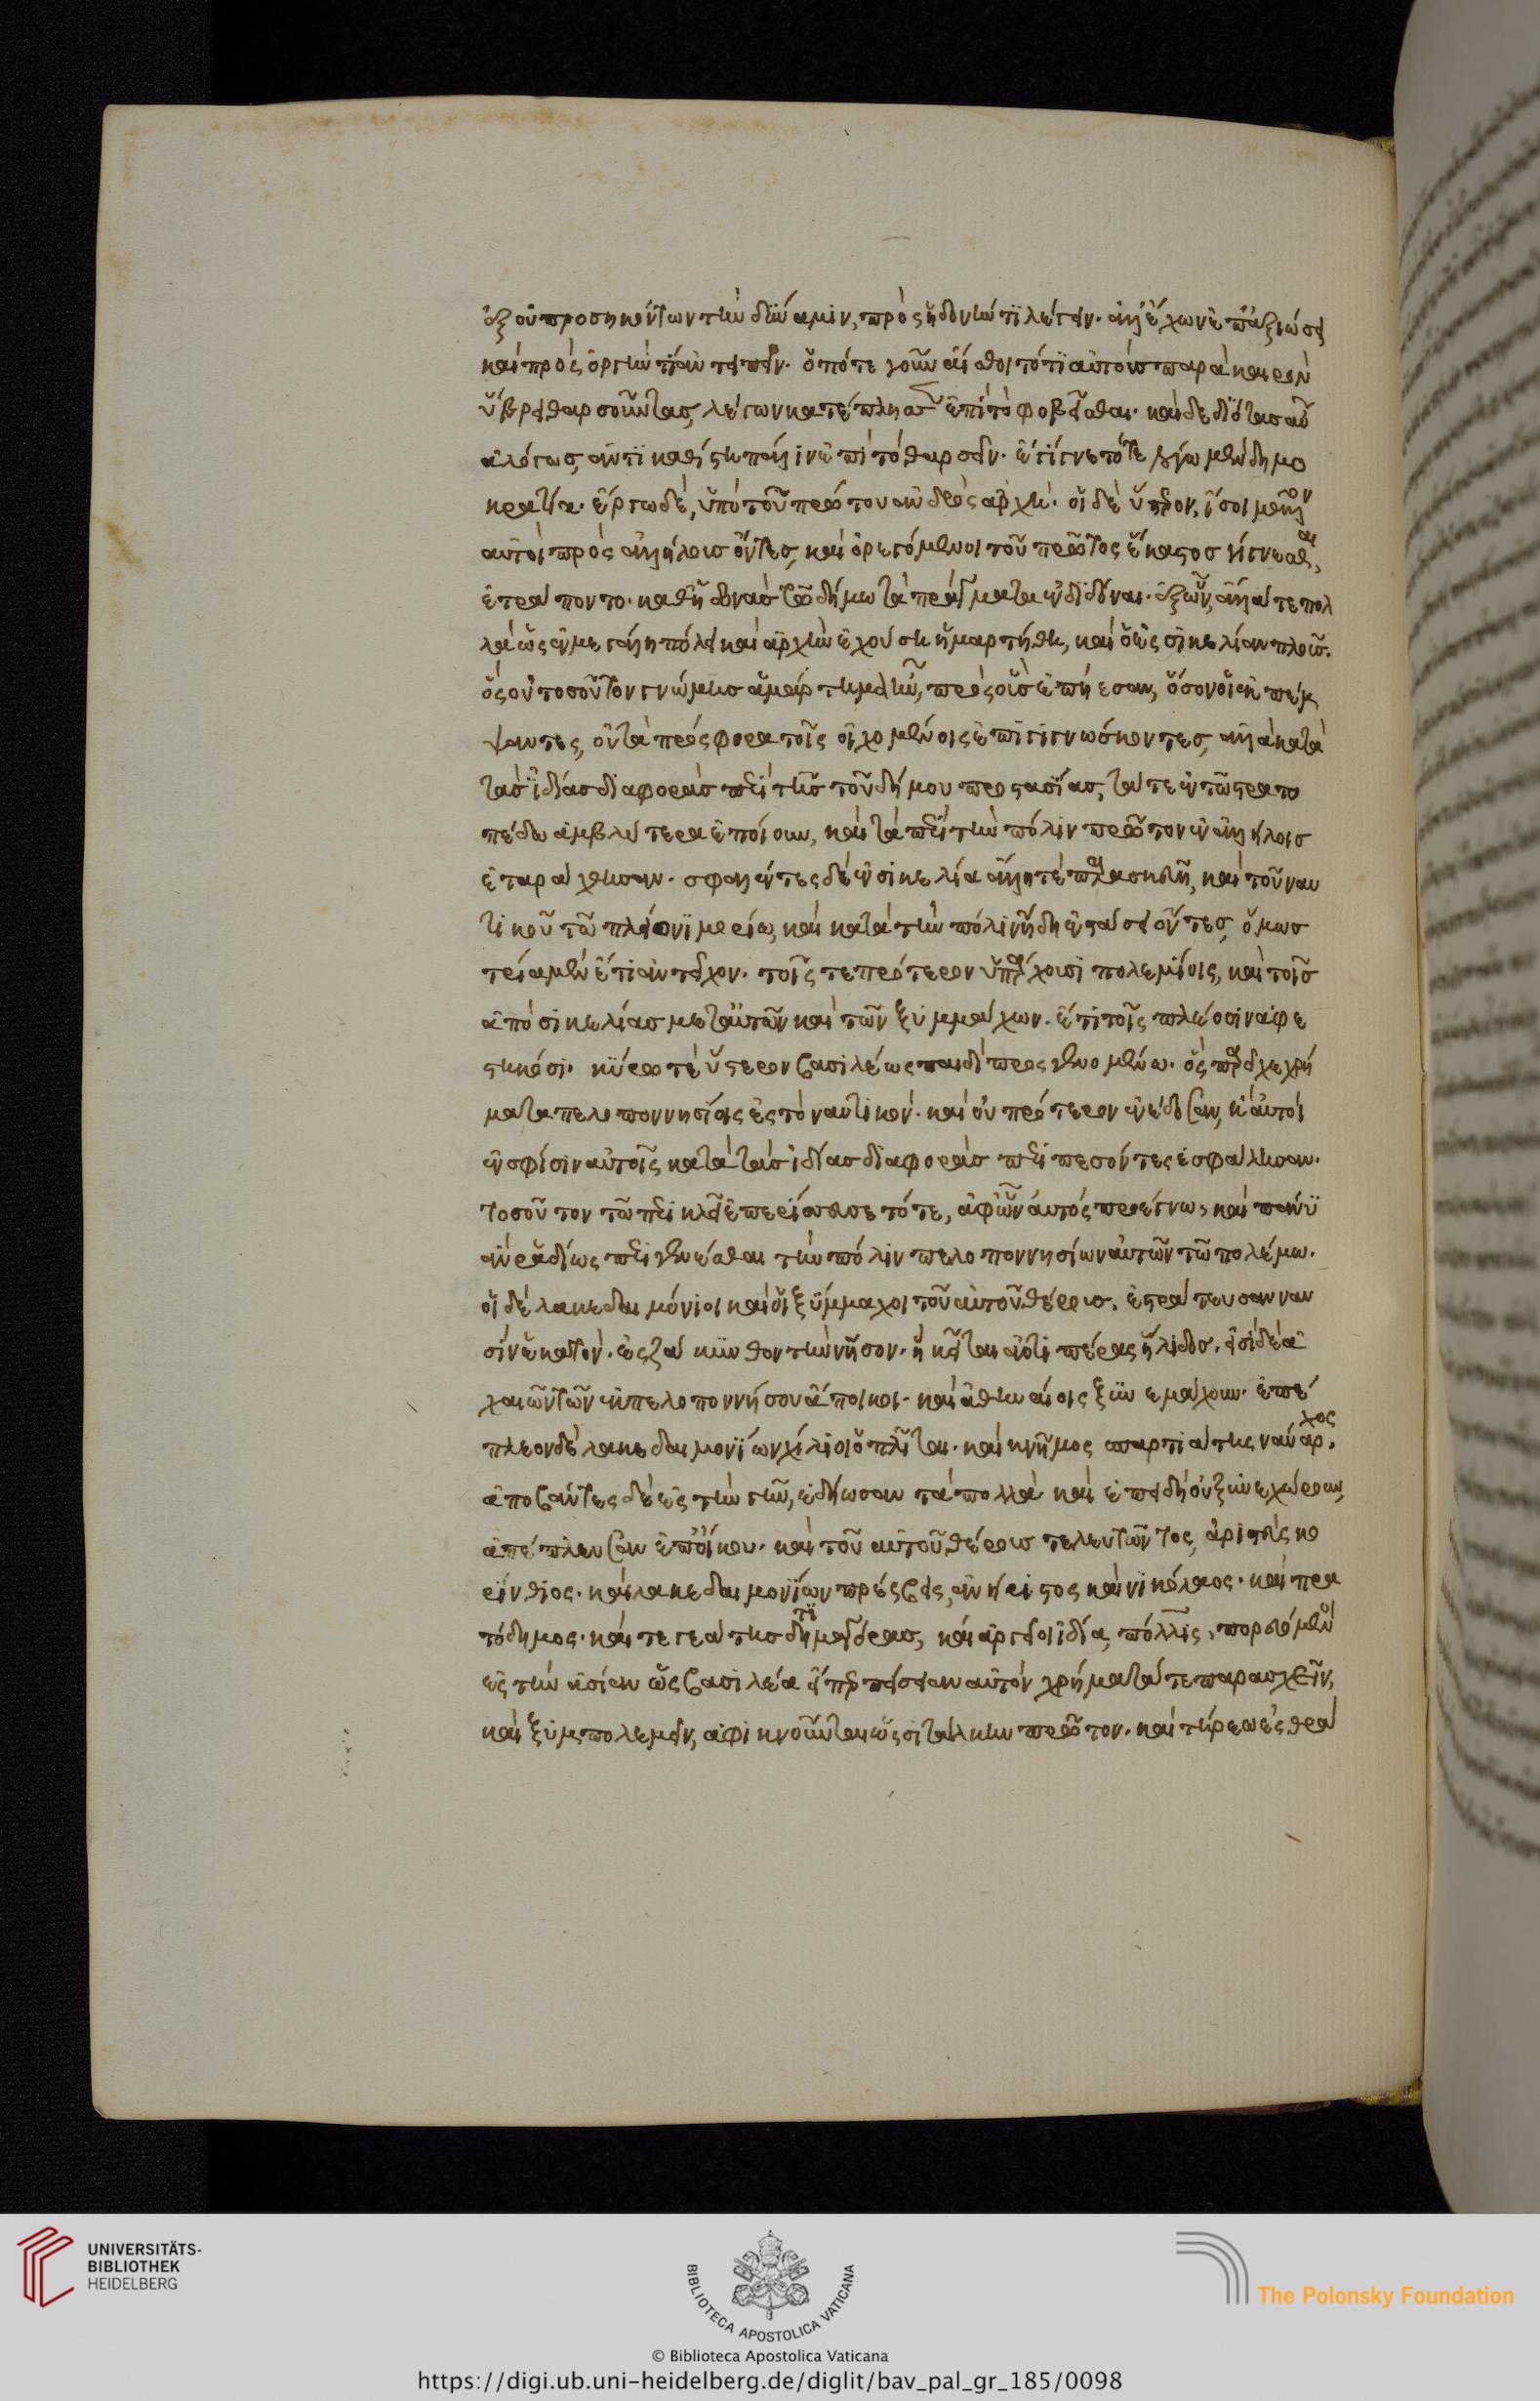 ἐξ οὐ προσηκόντων τὴν δύναμιν, πρὸς ἡδονήν τι λέγειν. ἀλλ' ἔχων ἐπ' ἀξιώσει
καὶ πρὸς ὀργήν τι ἀντειπεῖν. ὁπότε γοῦν αἴσθοιτό τι αὐτοὺς παρὰ καιρὸν
ὕβρει θαρσοῦντας, λέγων κατέπλησσεν ἐπὶ τὸ φοβεῖσθαι. καὶ δεδιότας αὖ
ἀλόγως, ἀντικαθίστη πάλιν ἐπὶ τὸ θαρσεῖν. ἐγίγνετό τε λόγω μὲν δημο
κρατία. ἔργω δὲ, ὑπὸ τοῦ πρώτου ἀνδρὸς ἀρχή. οἱ δὲ ὕστερον, ἴσοι μᾶλλον
αὐτοὶ πρὸς ἀλλήλους ὄντες, καὶ ὀρεγόμενοι τοῦ πρῶτος ἕκαστος γίγνεσθαι,
ἐτράποντο καθ' ἡδονὰς τῶ δήμω τὰ πράγματα ἐνδιδόναι. ἐξ ὧν, ἄλλα τε πολ
λὰ ὡς ἐν μεγάλη πόλει καὶ ἀρχὴν ἐχούση ἡμαρτήθη, καὶ ὁ ἐς σικελίαν πλοῦς.
ὃς οὐ τοσοῦτον γνώμης ἁμάρτημα ἦν, πρὸς οὓς ἐπήεσαν, ὅσον οἱ ἐκπέμ
ψαντες, οὐ τὰ πρόσφορα τοῖς οἰχομένοις ἐπιγιγνώσκοντες, ἀλλὰ κατὰ
τὰς ἰδίας διαφορὰς περὶ τῆς τοῦ δήμου προστασίας, τά τε ἐν τῶ στρατο
πέδω ἀμβλύτερα ἐποίουν, καὶ τὰ περὶ τὴν πόλιν πρῶτον ἐν ἀλλήλοις
ἐταράχθησαν. σφαλέντες δὲ ἐν σικελία ἄλλη τε παρασκευῆ, καὶ τοῦ ναυ
τικοῦ τῶ πλείονι μορίω, καὶ κατὰ τὴν πόλιν ἤδη ἐν στάσει ὄντες, ὅμως
τρία μὲν ἔτι ἀντεῖχον. τοῖς τε πρότερον ὑπάρχουσι πολεμίοις, καὶ τοῖς
ἀπὸ σικελίας μετ' αὐτῶν καὶ τῶν ξυμμάχων. ἔτι τοῖς πλέοσιν ἀφε
στηκόσι. κύρω τὲ ὕστερον βασιλέως παιδὶ προσγενομένω. ὃς παρεῖχε χρή
ματα πελοποννησίοις ἐς τὸ ναυτικόν. καὶ οὐ πρότερον ἐνέδοσαν, ἢ αὐτοὶ
ἐν σφίσιν αὐτοῖς κατὰ τὰς ἰδίας διαφορὰς περιπεσόντες ἐσφάλησαν.
τοσοῦτον τῶ περικλεῖ ἐπερίσσευσε τότε, ἀφ' ὧν αὐτὸς προέγνω, καὶ πάνυ
ἂν ῥαδίως περιγενέσθαι τὴν πόλιν πελοποννησίων αὐτῶν τῶ πολέμω.
οἱ δὲ λακεδαιμόνιοι καὶ οἱ ξύμμαχοι τοῦ αὐτοῦ θέρους. ἐστράτευσαν ναυ
σὶν ἑκατὸν. ἐς ζάκυνθον τὴν νῆσον. ἣ κεῖται ἀντιπέρας ἤλιδος. εἰσὶ δὲ ἀ
χαιῶν τῶν ἐκ πελοποννήσου ἄποικοι. καὶ ἀθηναίοις ξυνεμάχουν. ἐπέ
πλεον δὲ λακεδαιμονίων χίλιοι ὁπλῖται. καὶ κνῆμος σπαρτιάτης ναύαρχος.
ἀποβάντες δὲ ἐς τὴν γῆν, ἐδήωσαν τὰ πολλὰ καὶ ἐπειδὴ οὐ ξυνεχώρουν,
ἀπέπλευσαν ἐπ' οἴκου. καὶ τοῦ αὐτοῦ θέρους τελευτῶντος, ἀριστεὺς κο
ρίνθιος. καὶ λακεδαιμονίων πρέσβεις, ἀνήριστος καὶ νικόλαος. καὶ πρα
τόδημος. καὶ τεγεάτης τιμαγόρας, καὶ ἀργεῖοι ἰδία, πόλλις, πορευόμενοι
ἐς τὴν ἀσίαν ὡς βασιλέα εἴ πως πείσειαν αὐτὸν χρήματά τε παρασχεῖν,
καὶ ξυμπολεμεῖν, ἀφικνοῦνται ὡς σιτάλκην πρῶτον. καὶ τήρεω ἐς θρά
UNIVERSITÄTS-
BIBLIOTHEK
HEIDELBERG
BIBLIOTECA APOSTOLICA VATICANA
The Polonsky Foundation
© Biblioteca Apostolica Vaticana
https://digi.ub.uni-heidelberg.de/diglit/bav_pal_gr_185/0098